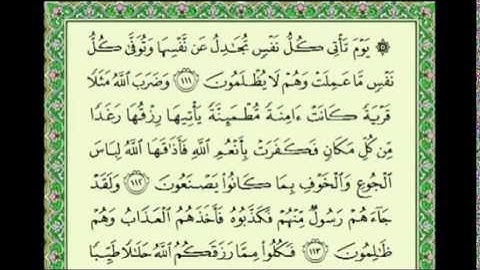 ۞ يَوْمَ تَأْتِي كُلُّ نَفْسٍ تُجَادِلُ عَن نَّفْسِهَا وَتُوَفَّىٰ كُلُّ
نَفْسٍ مَّا عَمِلَتْ وَهُمْ لَا يُظْلَمُونَ ١١١ وَضَرَبَ اللَّهُ مَثَلًا
قَرْيَةً كَانَتْ ءَامِنَةً مُّطْمَئِنَّةً يَأْتِيهَا رِزْقُهَا رَغَدًا
مِّن كُلِّ مَكَانٍ فَكَفَرَتْ بِأَنْعُمِ اللَّهِ فَأَذَاقَهَا اللَّهُ لِبَاسَ
الْجُوعِ وَالْخَوْفِ بِمَا كَانُوا يَصْنَعُونَ ١١٢ وَلَقَدْ
جَاءَهُمْ رَسُولٌ مِّنْهُمْ فَكَذَّبُوهُ فَأَخَذَهُمُ الْعَذَابُ وَهُمْ
ظَالِمُونَ ١١٣ فَكُلُوا مِمَّا رَزَقَكُمُ اللَّهُ حَلَالًا طَيِّبًا